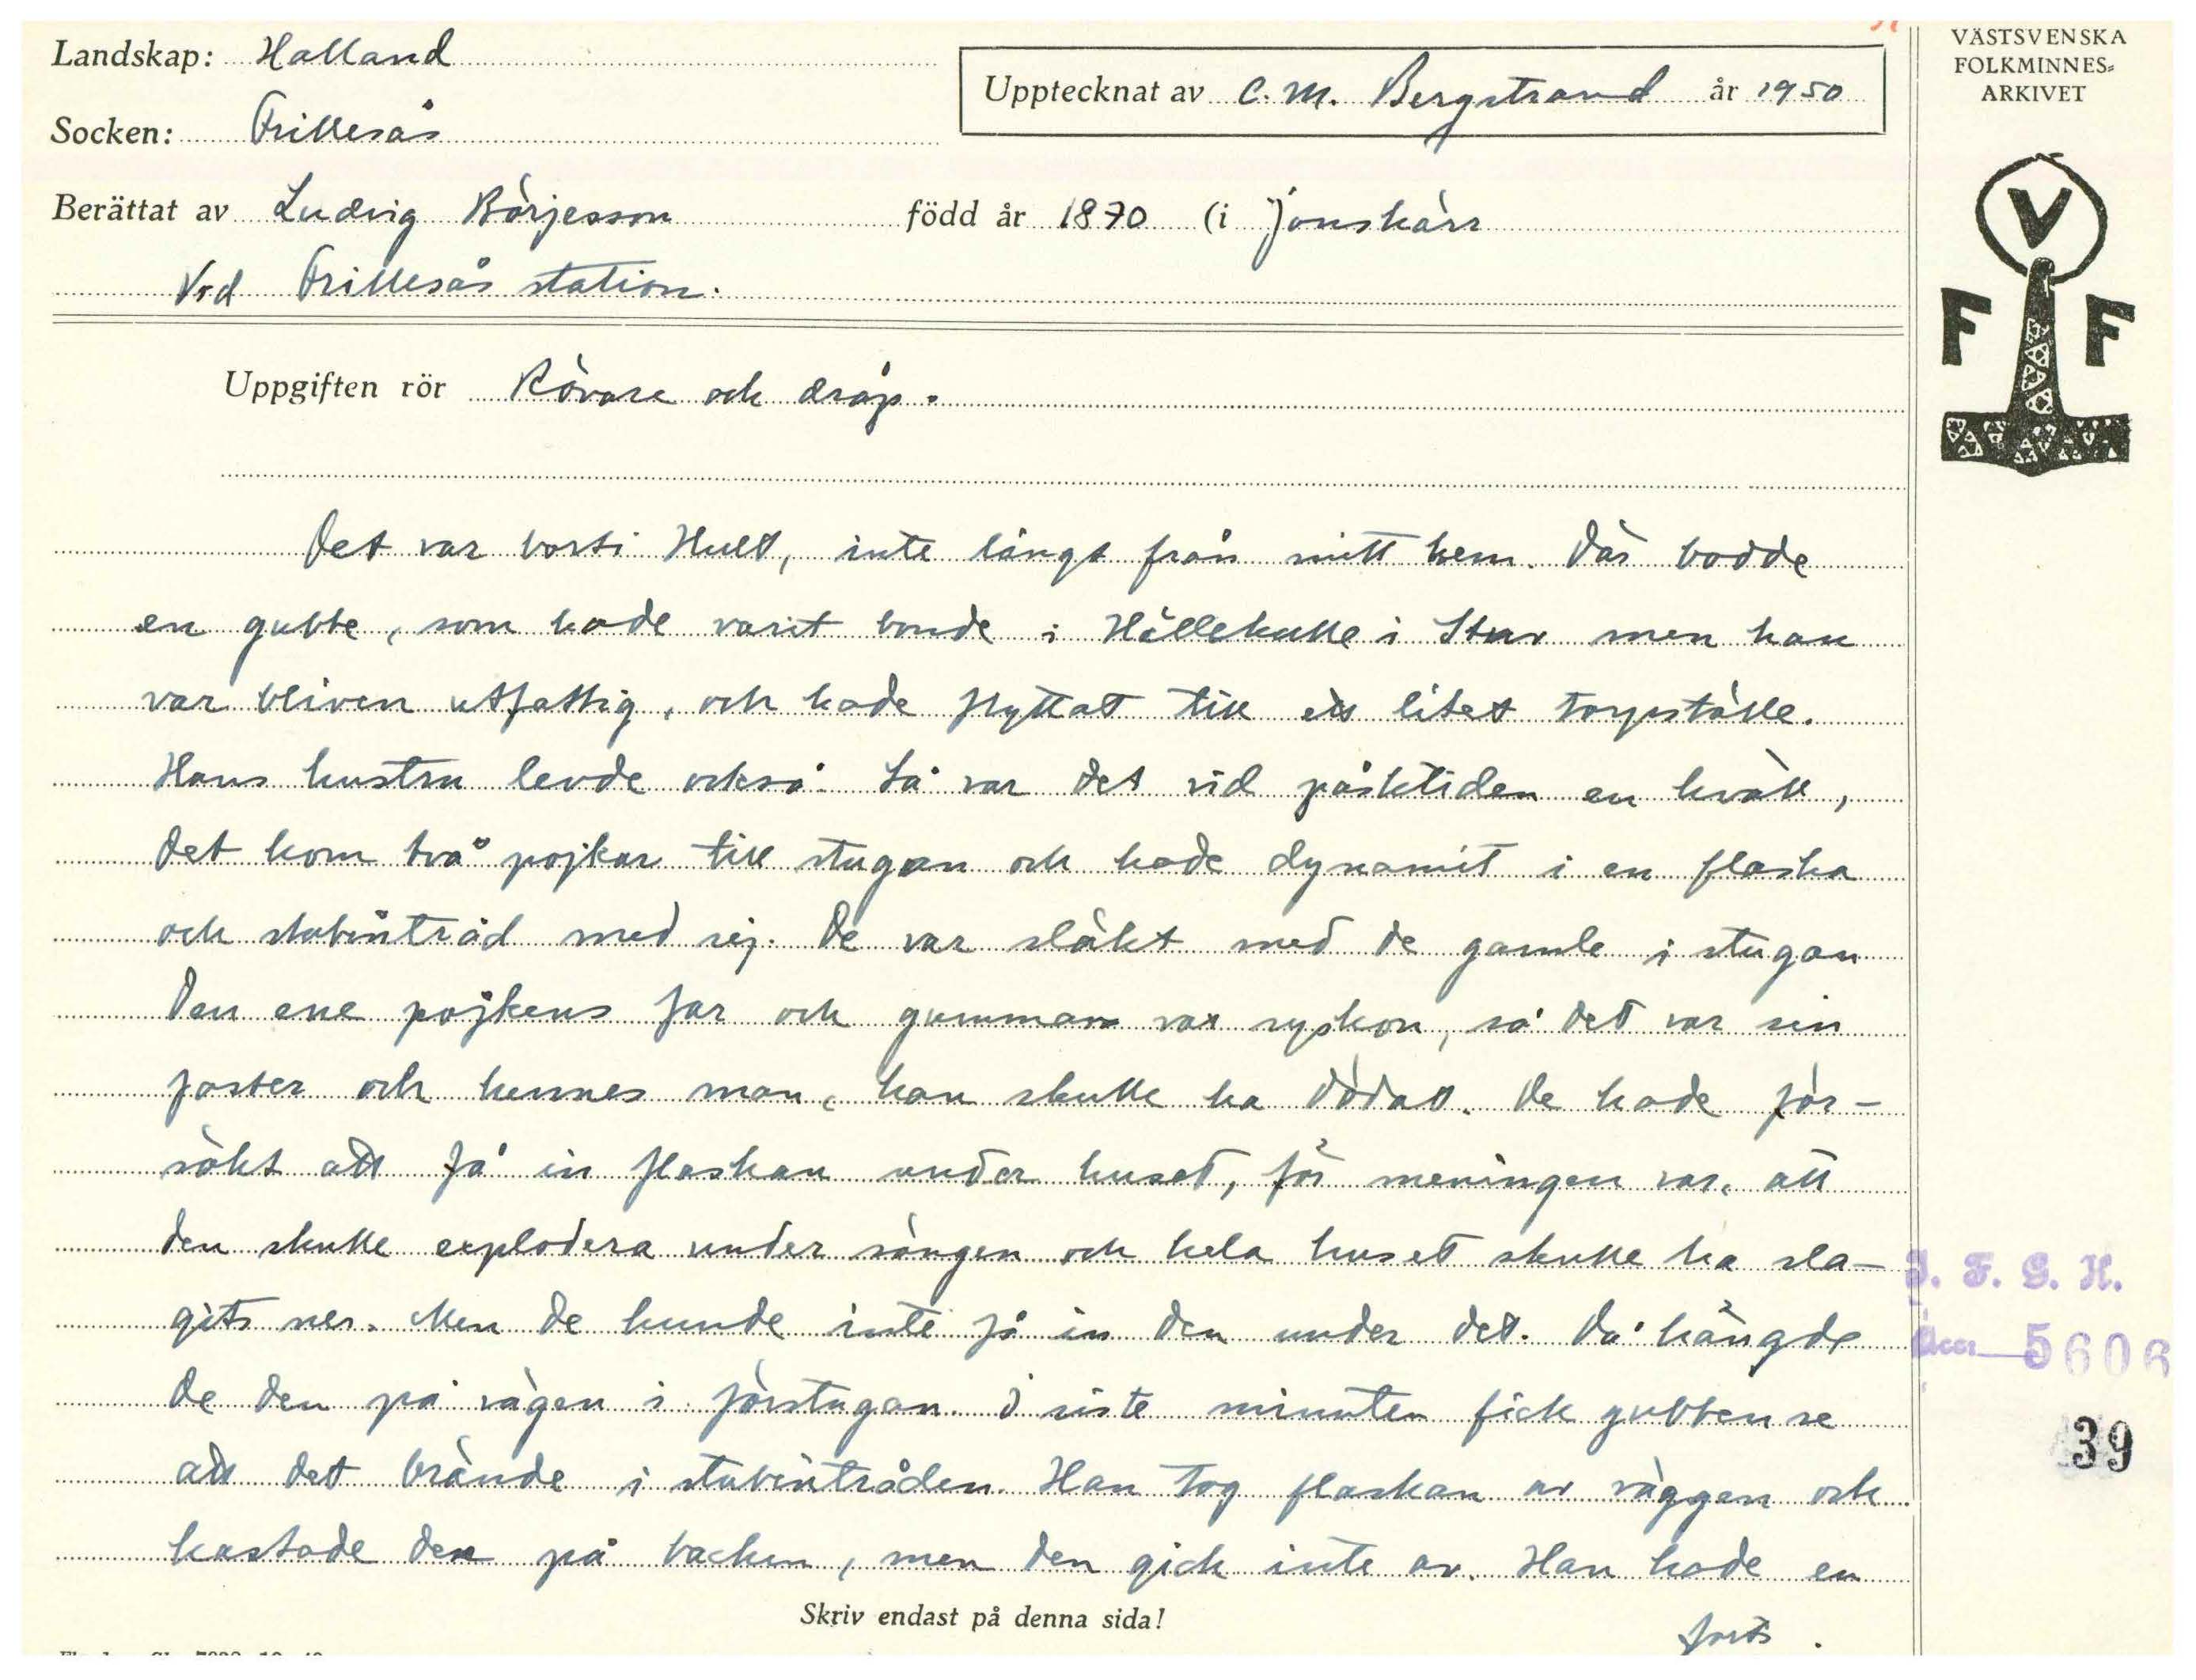 Landskap: Halland
Upptecknat av C. M. Bergstrand år 1950
Socken: Frillesås
Berättat av Ludvig Börjesson född år 1870 (i Jonskärr
Vid Frillesås station.
VÄSTSVENSKA
FOLKMINNES=
ARKIVET
V
F F
Uppgiften rör Rövare och dråp.
Det var borti Hult, inte långt från mitt hem. Där bodde
en gubbe, som hade varit bonde i Hällekulle i Stuv men han
var bliven utfattig, och hade flyttat till ett litet torpställe.
Hans hustru levde också. Så var det vid påsktiden en kväll,
det kom två pojkar till stugan och hade dynamit i en flaska
och stubintråd med sej. De var släkt med de gamle i stugan
Den ene pojkens far och gumman var syskon, så det var sin
faster och hennes man, han skulle ha dödat. De hade för-
sökt att få in flaskan under huset, för meningen var, att
den skulle explodera under sängen och hela huset skulle ha sla-
gits ner. Men de kunde inte få in den under det. Då hängde
de den på vägen i förstugan. I siste minuten fick gubben se
att det brände i stubintråden. Han tog flaskan av väggen och
kastade den på backen, men den gick inte av. Han hade en
Skriv endast på denna sida!
forts.
I. F. G. H.
Acc. 5606
39